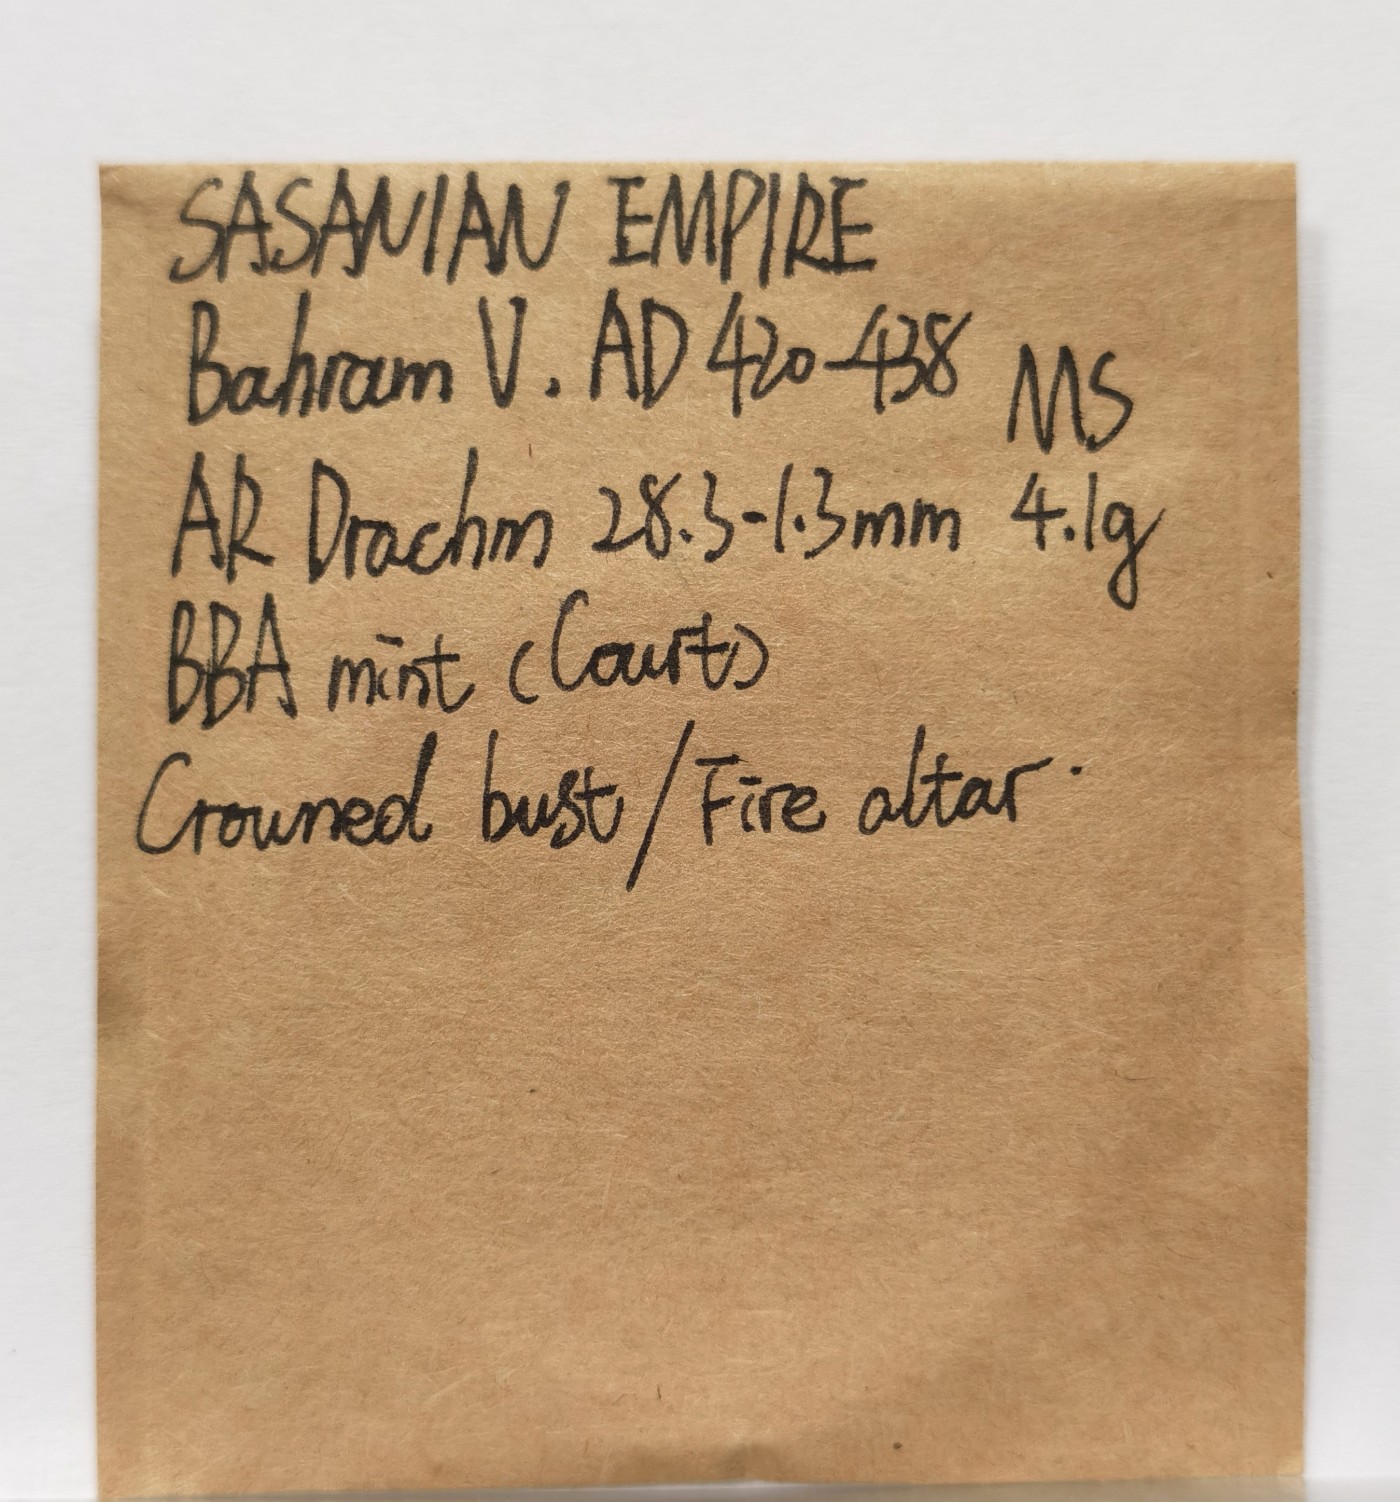 SASANIAN EMPIRE
Bahram V. AD 420-438 MS
AR Drachm 28.3-1.3mm 4.1g
BBA mint (Court)
Crowned bust/Fire altar.